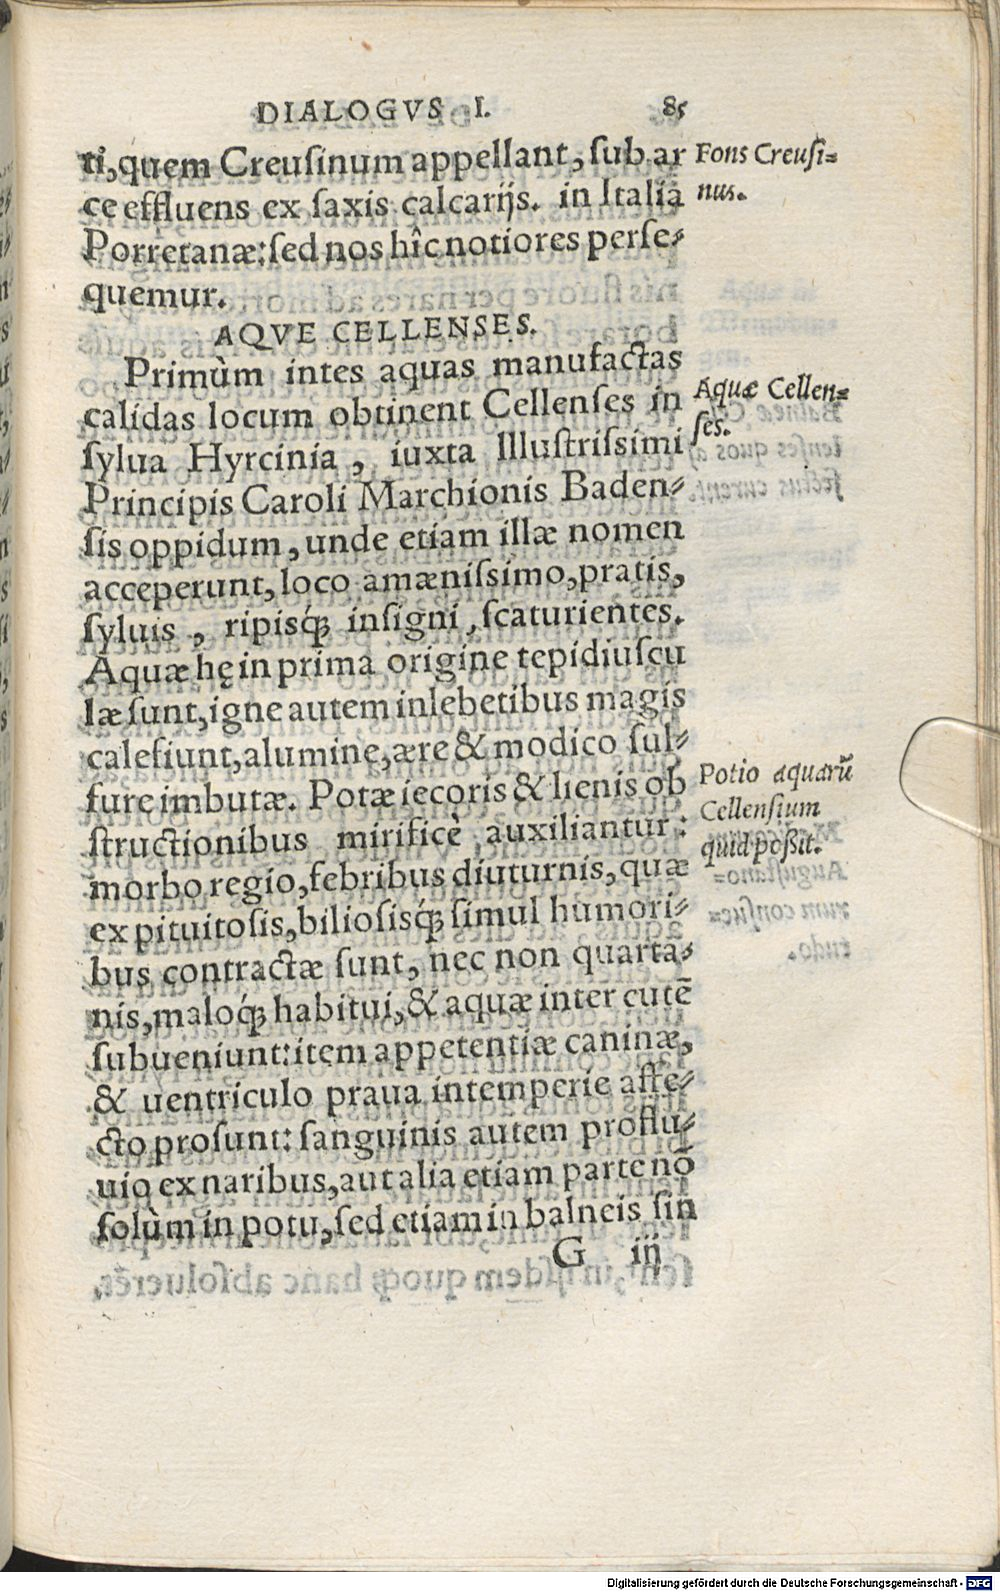 DIALOGVS I. 85
ti, quem Creuſinum appellant, ſub ar
ce effluens ex ſaxis calcarijs. in Italia
Porretanæ: ſed nos hîc notiores perſe-
quemur.
Fons Creuſi=
nus.
AQVE CELLENSES.
Primùm intes aquas manufactas
calidas locum obtinent Cellenſes in
ſylua Hyrcinia, iuxta Illuſtriſsimi
Principis Caroli Marchionis Baden-
ſis oppidum, unde etiam illæ nomen
acceperunt, loco amæniſsimo, pratis,
ſyluis, ripisq́; inſigni, ſcaturientes.
Aquæ hę in prima origine tepidiuſcu
læ ſunt, igne autem in lebetibus magis
calefiunt, alumine, ære & modico ſul-
fure imbutæ. Potæ iecoris & lienis ob
ſtructionibus mirificè auxiliantur:
morbo regio, febribus diuturnis, quæ
ex pituitoſis, bilioſisq́; ſimul humori-
bus contractæ ſunt, nec non quarta-
nis, maloq́; habitui, & aquæ inter cutē
ſubueniunt: item appetentiæ caninæ,
& uentriculo praua intemperie affe-
cto proſunt: ſanguinis autem proflu-
uio ex naribus, aut alia etiam parte nō
ſolùm in potu, ſed etiam in balneis ſin
Aquæ Cellen=
ſes.
Potio aquarū
Cellenſium
quid poßit.
G iij
Digitalisierung gefördert durch die Deutsche Forschungsgemeinschaft - DFG